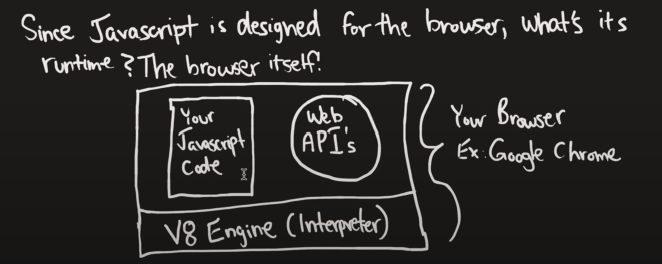 Since Javascript is designed for the browser, what's its
runtime? The browser itself!
Your
Javascript
Code
Web
API's
V8 Engine (Interpreter)
Your Browser
Ex: Google Chrome